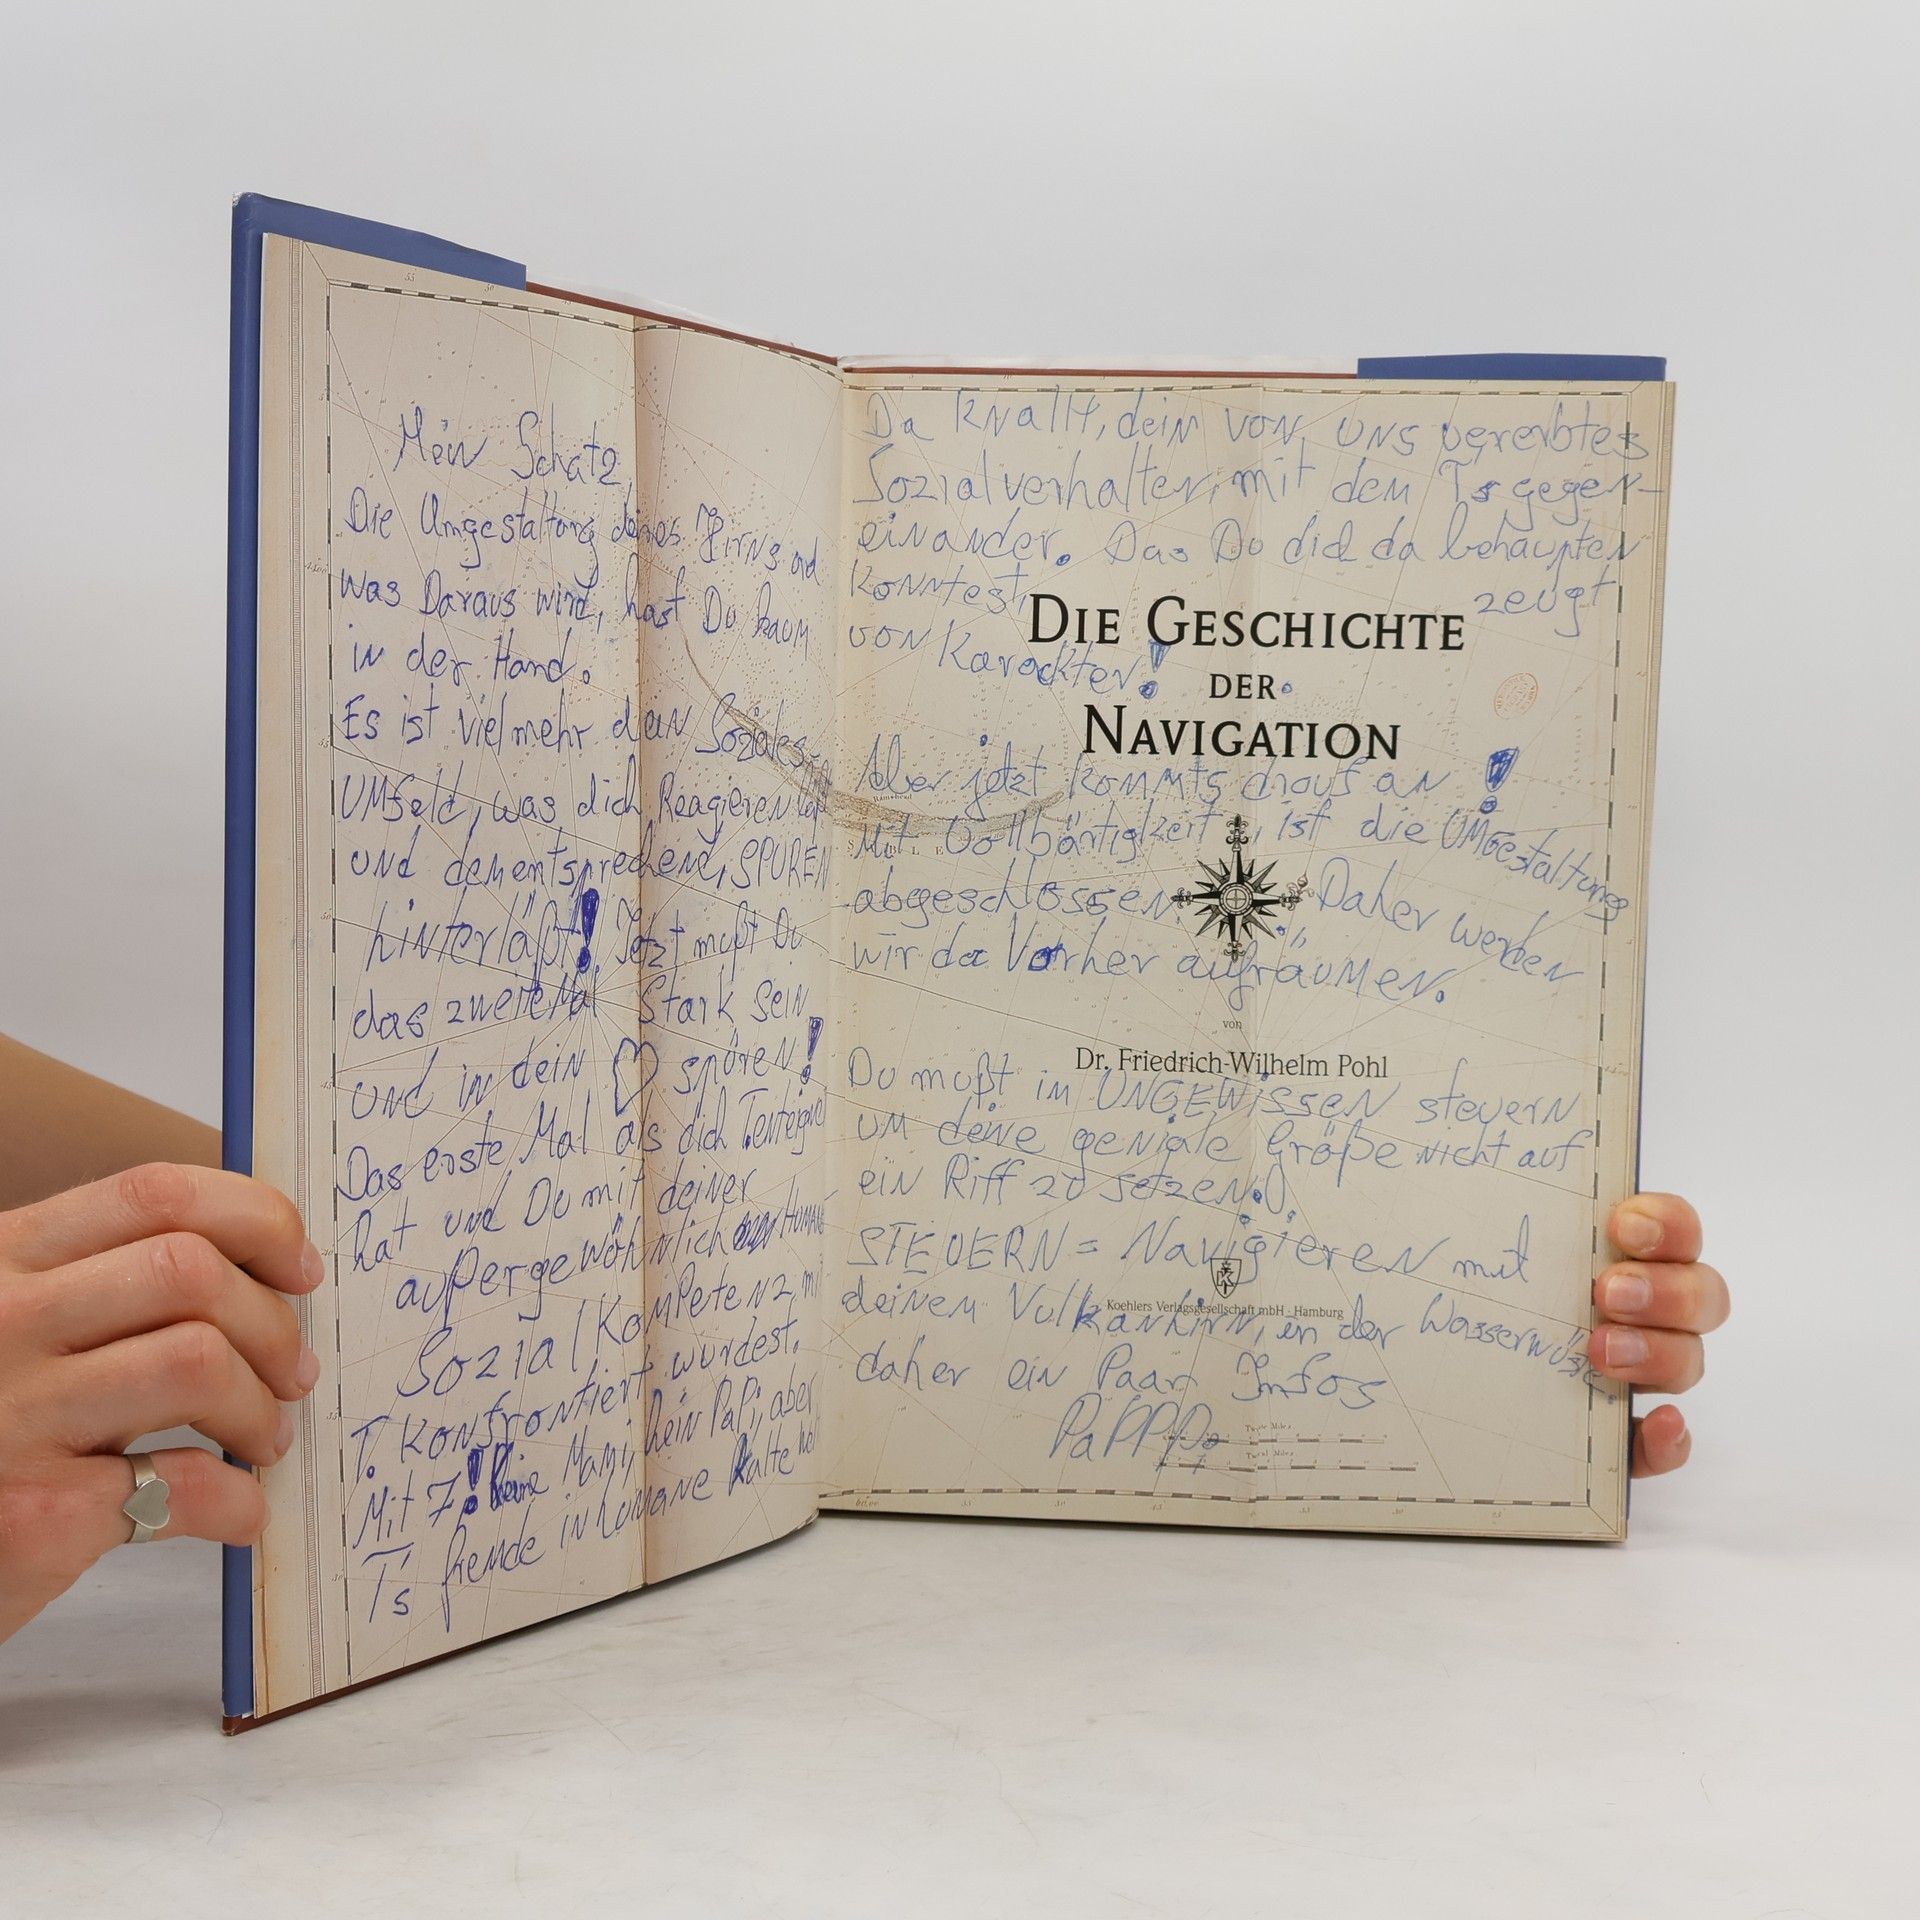 Mein Schatz
Die Umgestaltung deines Hirns und
was Daraus wird, hast Du kaum
in der Hand.
Es ist vielmehr dein Soziales-
UMfeld, was dich Reagieren läßt
und dementsprechend, SPUREN
hinterläßt! Jetzt mußt Du
das zweite Mal Stark sein
und in dein ♡ spüren!
Das erste Mal als dich T.
hat und Du mit deiner
außergewöhnlich
Sozial Kompetenz, mit
T. Konfrontiert wurdest.
Mit 7! keine Mami, kein Papi, aber
T's fremde inhumane Kälte
Da Knallt, dein von UNS vererbtes
Sozialverhalten, mit dem T's gegen-
einander. Das Du did da behaupten
Konntest, zeugt
von Karackter!
DIE GESCHICHTE
DER
NAVIGATION
Aber jetzt kommts drauf an!
Mit Vollbärtigkeit, ist die UMGestaltung
abgeschlossen. Daher werden
wir da Vorher aufräumen.
von
Dr. Friedrich-Wilhelm Pohl
Du mußt im UNGEWissen steuern
um deine geniale Größe nicht auf
ein Riff zu setzen.
STEUERN = Navigieren mit
Koehlers Verlagsgesellschaft mbH · Hamburg
deinem Vulkanhirn, in der Wasserwüste.
daher ein Paar Infos
PaPPP.